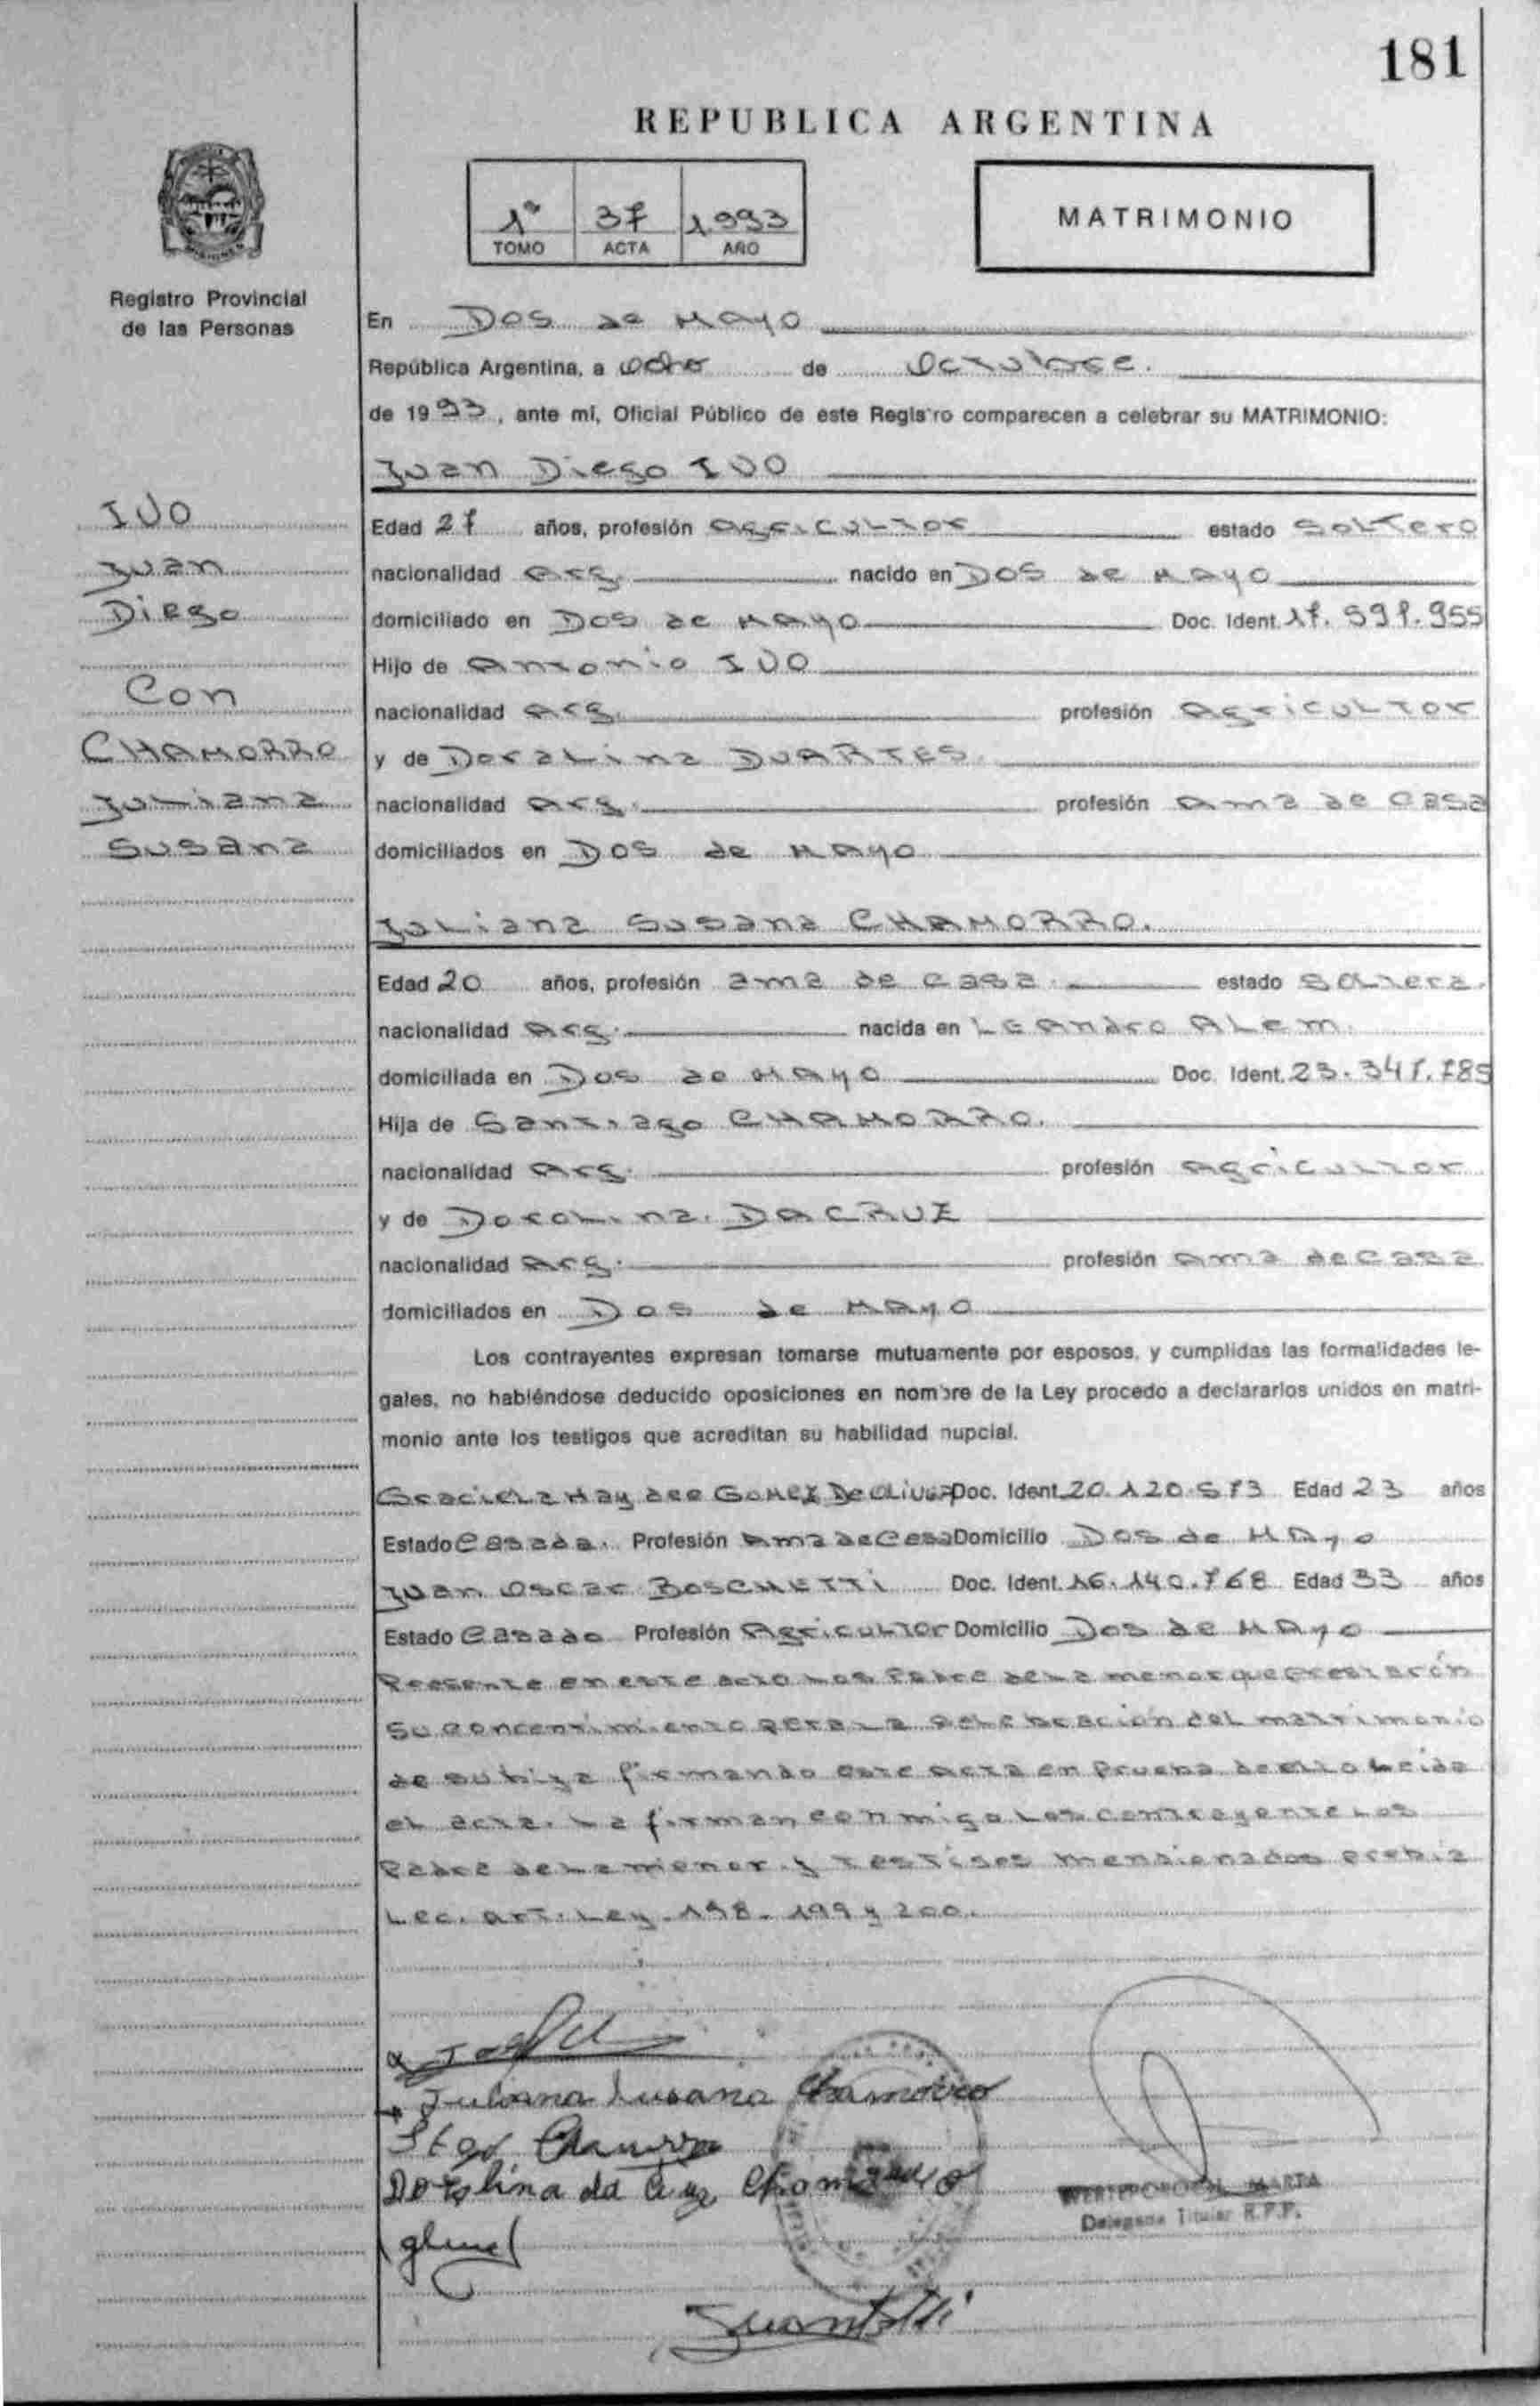 181
REPUBLICA ARGENTINA
1º 37 1.993
TOMO ACTA AÑO
MATRIMONIO
Registro Provincial
de las Personas
En Dos de Mayo
República Argentina, a ocho de Octubre.
de 1993, ante mí, Oficial Público de este Registro comparecen a celebrar su MATRIMONIO:
Juan Diego IVO
IVO
Juan
Diego
Con
CHAMORRO
Juliana
Susana
Edad 27 años, profesión agricultor estado Soltero
nacionalidad Arg. nacido en Dos de Mayo
domiciliado en Dos de Mayo Doc. Ident.
Hijo de Antonio IVO
nacionalidad Arg. profesión Agricultor
y de Doralina DUARTES.
nacionalidad Arg. profesión ama de casa
domiciliados en Dos de Mayo
Juliana Susana CHAMORRO.
Edad 20 años, profesión ama de casa. estado Soltera.
nacionalidad Arg. nacida en Leandro Alem.
domiciliada en Dos de Mayo Doc. Ident.
Hija de Santiago CHAMORRO.
nacionalidad Arg. profesión agricultor
y de DACRUZ
nacionalidad Arg. profesión ama de casa
domiciliados en Dos de Mayo
Los contrayentes expresan tomarse mutuamente por esposos, y cumplidas las formalidades le-
gales, no habiéndose deducido oposiciones en nombre de la Ley procedo a declararlos unidos en matri-
monio ante los testigos que acreditan su habilidad nupcial.
Graciela Haydee Gomez De Doc. Ident. 20.120.573 Edad 23 años
Estado Casada. Profesión Ama de Casa Domicilio Dos de Mayo
Juan Oscar BOSCHETTI Doc. Ident. 16.140.768 Edad 33 años
Estado Casado Profesión Agricultor Domicilio Dos de Mayo
Presente en este acto los Padre de la menor que prestarón
su concentimiento para la celebración del matrimonio
de su hija firmando este acta en prueba de ello Leida
el acta. La firman conmigo los contrayente Los
Padre de la menor y testigos mensionados prebia
Lec. art. Ley. 198 - 199 y 200.
Juliana Susana Chamorro
Chamorro
Doralina da Cruz
MARTA
Delegada Titular R.P.P.